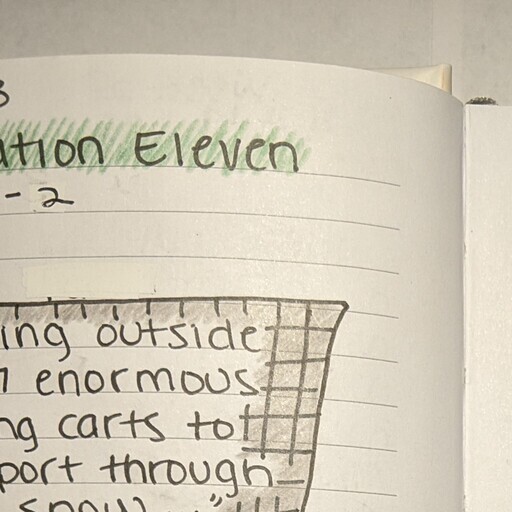 3
ation Eleven
- 2
ing outside
enormous
ng carts to
port through
snow..."